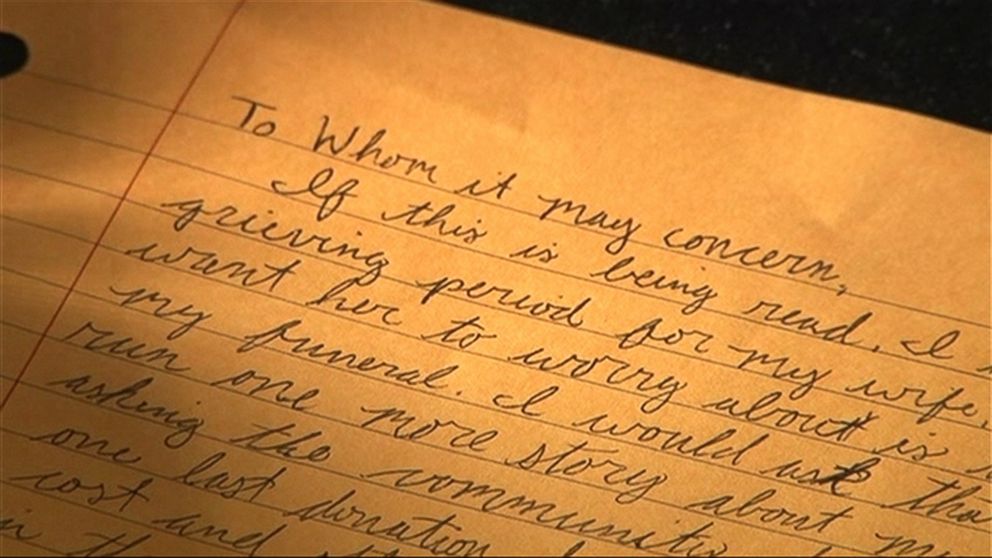 To Whom it may concern,
If this is being read, I
grieving period for my wife,
want her to worry about is
my funeral. I would ask tha
run one more story about m
asking the communit
one last donation
cost and
in th